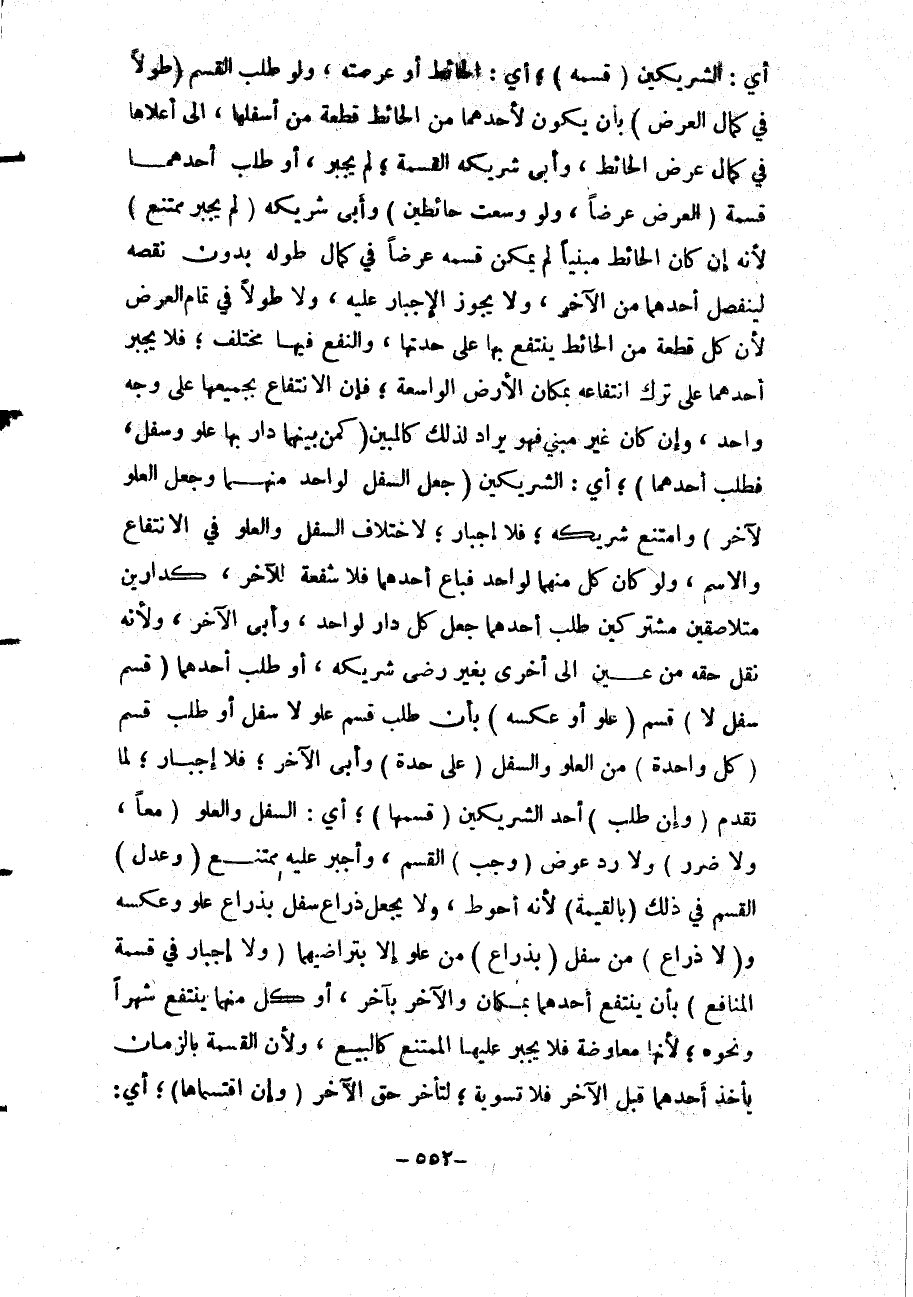 أي : الشريكين ( قسمه ) ؛ أي : الحائط أو عرصته ، ولو طلب القسم (طولاً
في كمال العرض ) بأن يكون لأحدهما من الحائط قطعة من أسفلها ، الى أعلاها
في كمال عرض الحائط ، وأبى شريكه القسمة ؛ لم يجبر ، أو طلب أحدهمـــا
قسمة ( العرض عرضاً ، ولو وسعت حائطين ) وأبى شريكه ( لم يجبر ممتنع )
لأنه إن كان الحائط مبنياً لم يمكن قسمه عرضاً في كمال طوله بدون نقصه
لينفصل أحدهما من الآخر ، ولا يجوز الإجبار عليه ، ولا طولاً في تمام العرض
لأن كل قطعة من الحائط ينتفع بها على حدتها ، والنفع فيهــا مختلف ؛ فلا يجبر
أحدهما على ترك انتفاعه بمكان الأرض الواسعة ؛ فإن الانتفاع بجميعها على وجه
واحد ، وإن كان غير مبني فهو يراد لذلك كالمبين (كمن بينهما دار بها علو وسفل،
فطلب أحدهما ) ؛ أي : الشريكين ( جعل السفل لواحد منهــما وجعل العلو
لآخر ) وامتنع شريكه ؛ فلا إجبار ؛ لاختلاف السفل والعلو في الانتفاع
والاسم ، ولو كان كل منهما لواحد فباع أحدهما فلا شفعة للآخر ، كدارين
متلاصقين مشتركين طلب أحدهما جعل كل دار لواحد ، وأبى الآخر ، ولأنه
نقل حقه من عــين الى أخرى بغير رضى شريكه ، أو طلب أحدهما ( قسم
سفل لا ) قسم ( علو أو عكسه ) بأن طلب قسم علو لا سفل أو طلب قسم
( كل واحدة ) من العلو والسفل ( على حدة ) وأبى الآخر ؛ فلا إجبــار ؛ لما
تقدم ( وإن طلب ) أحد الشريكين ( قسمها ) ؛ أي : السفل والعلو ( معاً ،
ولا ضرر ) ولا رد عوض ( وجب ) القسم ، وأجبر عليه ممتنــع ( وعدل )
القسم في ذلك (بالقيمة) لأنه أحوط ، ولا يجعل ذراع سفل بذراع علو وعكسه
و( لا ذراع ) من سفل ( بذراع ) من علو إلا بتراضيهما ( ولا إجبار في قسمة
المنافع ) بأن ينتفع أحدهما بمكان والآخر بآخر ، أو كل منهما ينتفع شهراً
ونحوه ؛ لأنها معاوضة فلا يجبر عليهــا الممتنع كالبيــع ، ولأن القسمة بالزمان
يأخذ أحدهما قبل الآخر فلا تسوية ؛ لتأخر حق الآخر ( وإن اقتسماها) ؛ أي:
-٥٥٢-